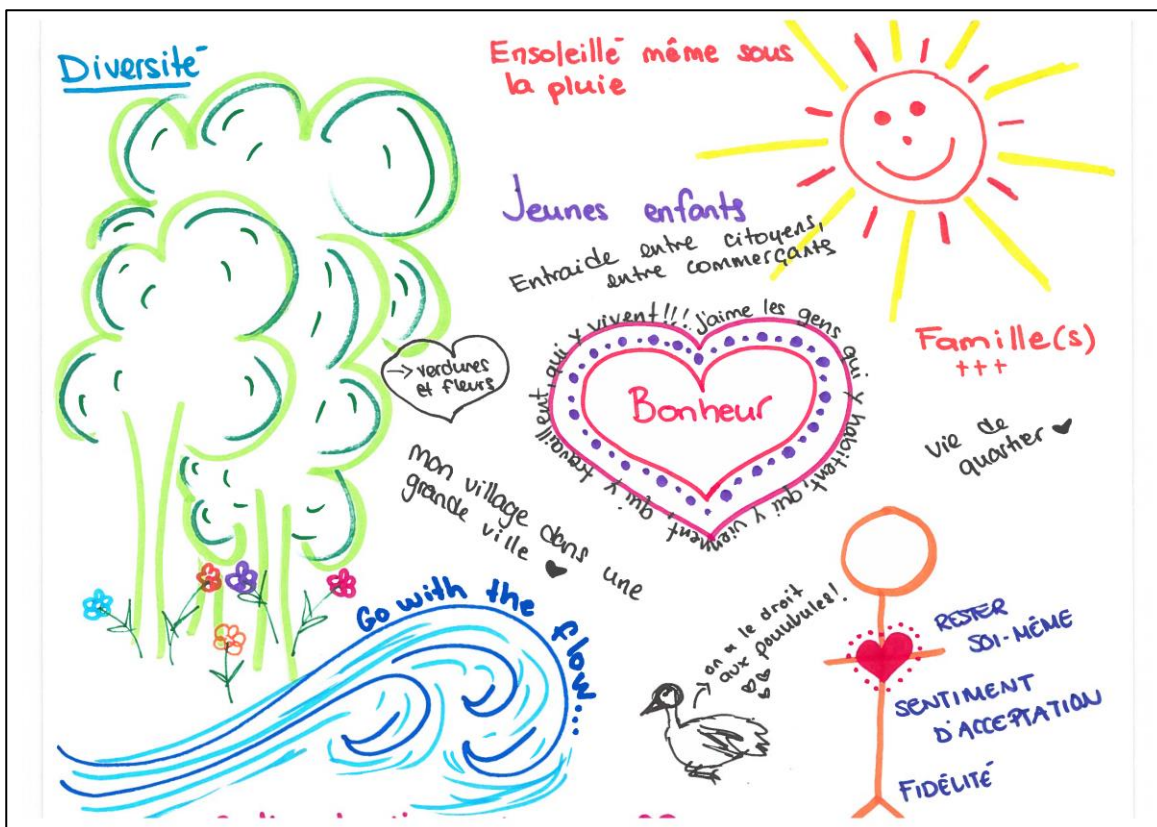 Diversité
Ensoleillé même sous
la pluie
Jeunes enfants
Entraide entre citoyens,
entre commerçants
j'aime les gens qui y habitent, qui y viennent, qui y travaillent, qui y vivent!!!
Bonheur
Famille(s)
+++
→ verdures
et fleurs
vie de
quartier
mon village dans une
grande ville
Go with the flow...
on a le droit
aux
RESTER
SOI-MÊME
SENTIMENT
D'ACCEPTATION
FIDÉLITÉ